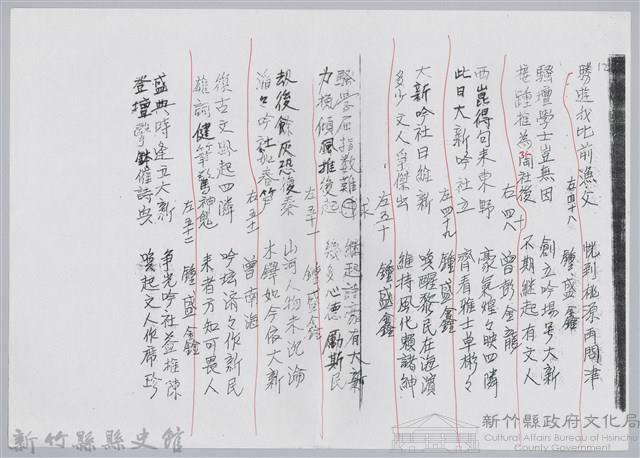 12
勝遊找比前漁父　恍到桃源再問津
左四十八　鍾盛鑫
騷壇學士豈無因　創立吟場号大新
接踵推為陶社後　不期継起有文人
左四八　曾彭金龍
西崑得句来東野　豪氣煌々映四隣
此日大新吟社立　齊看雅士卓彬々
左四十九　鍾盛鑫
大新吟社日維新　喚醒黎民在海濱
多少文人争傑出　維持風化賴諸紳
左五十　鍾盛鑫
騷學屈指数難　継起詩家有大新
力挽傾風推後起　幾多心思勵斯民
左五十一　鍾盛鑫
劫後餘灰恐復秦　山河人物未沉淪
滔々吟社如春笋　木鐸如今依大新
左五十一　曾南海
復古文風起四隣　吟坛濟々作新民
雄詞健筆驚神鬼　来者方知可畏人
左五十二　鍾盛鑫
盛典時逢立大新　争光吟社益推陳
登壇擊鉢催詩興　喚起文人作席珍
新竹縣縣史館
新竹縣政府文化局
Cultural Affairs Bureau of Hsinchu
County Government